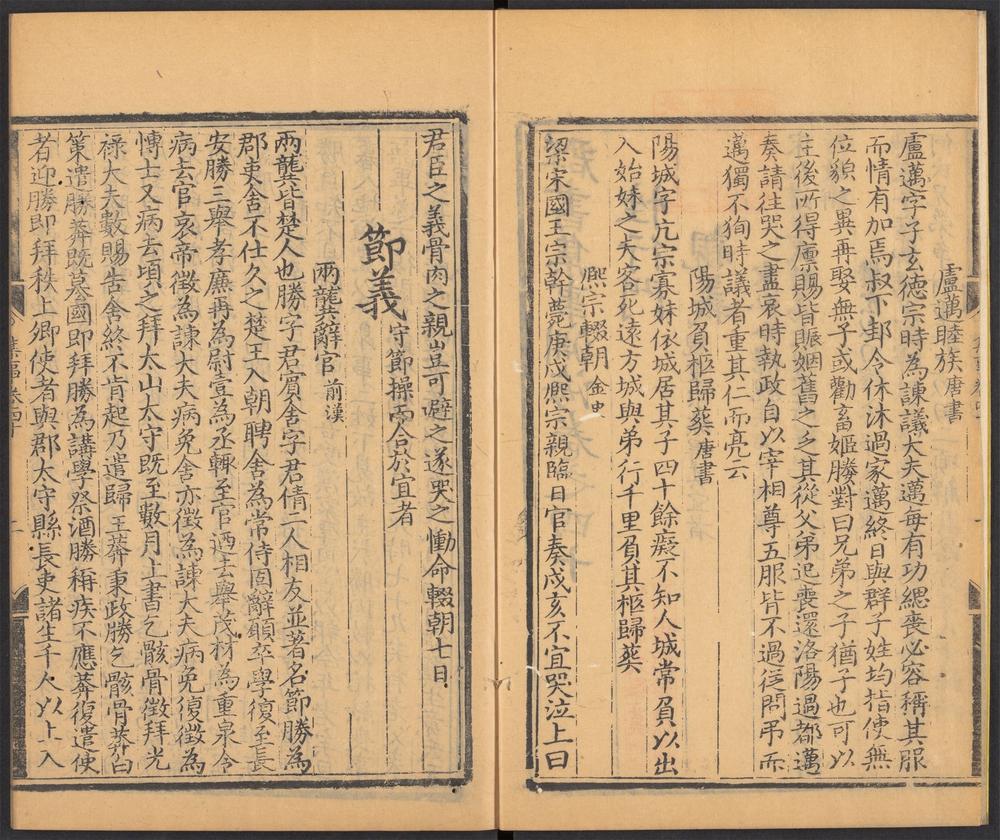 盧邁睦族唐書
盧邁字子玄德宗時為諫議大夫邁每有功緦喪必容稱其服
而情有加焉叔下邽令休沐過家邁終日與群子姓均指使無
位貌之異再娶無子或勸畜姬媵對曰兄弟之子猶子也可以
主後所得廩賜皆賑姻舊之乏其從父弟𧺆喪還洛陽過都邁
奏請往哭之盡哀時執政自以宰相尊五服皆不過從問弔而
邁獨不狥時議者重其仁而亮云
陽城負柩歸葬唐書
陽城字亢宗寡妹依城居其子四十餘癡不知人城常負以出
入始妹之夫客死遠方城與弟行千里負其柩歸葬
熙宗輟朝金史
梁宋國王宗幹薨庚戌熙宗親臨日官奏戌亥不宜哭泣上曰
君臣之義骨肉之親豈可避之遂哭之慟命輟朝七日
節義守節操而合於宜者
兩龔辭官前漢
兩龔皆楚人也勝字君賔舍字君倩二人相友並著名節勝為
郡吏舍不仕久之楚王入朝聘舍為常侍固辭願卒學復至長
安勝三舉孝廉再為尉壹為丞輒至官迺去舉茂材為重泉令
病去官哀帝徵為諫大夫病免舍亦徵為諫大夫病免復徵為
博士又病去頃之拜太山太守既至數月上書乞骸骨徵拜光
祿大夫數賜告舍終不肯起乃遣歸王莽秉政勝乞骸骨莽白
策遣勝莽既墓國即拜勝為講學祭酒勝稱疾不應莽復遣使
者迎勝即拜秩上卿使者與郡太守縣長吏諸生千人以上入